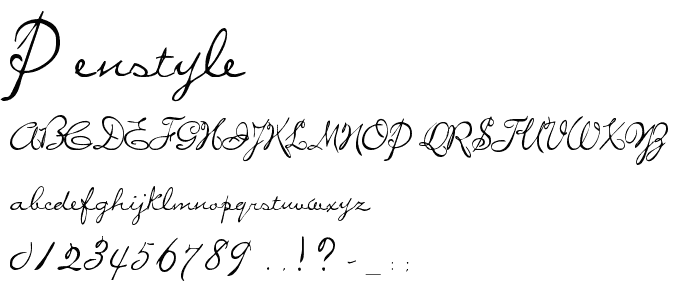 Penstyle
ABCDEFGHIJKLMNOPQRSTUVWXYZ
abcdefghijklmnopqrstuvwxyz
0123456789 .,!?-_:;